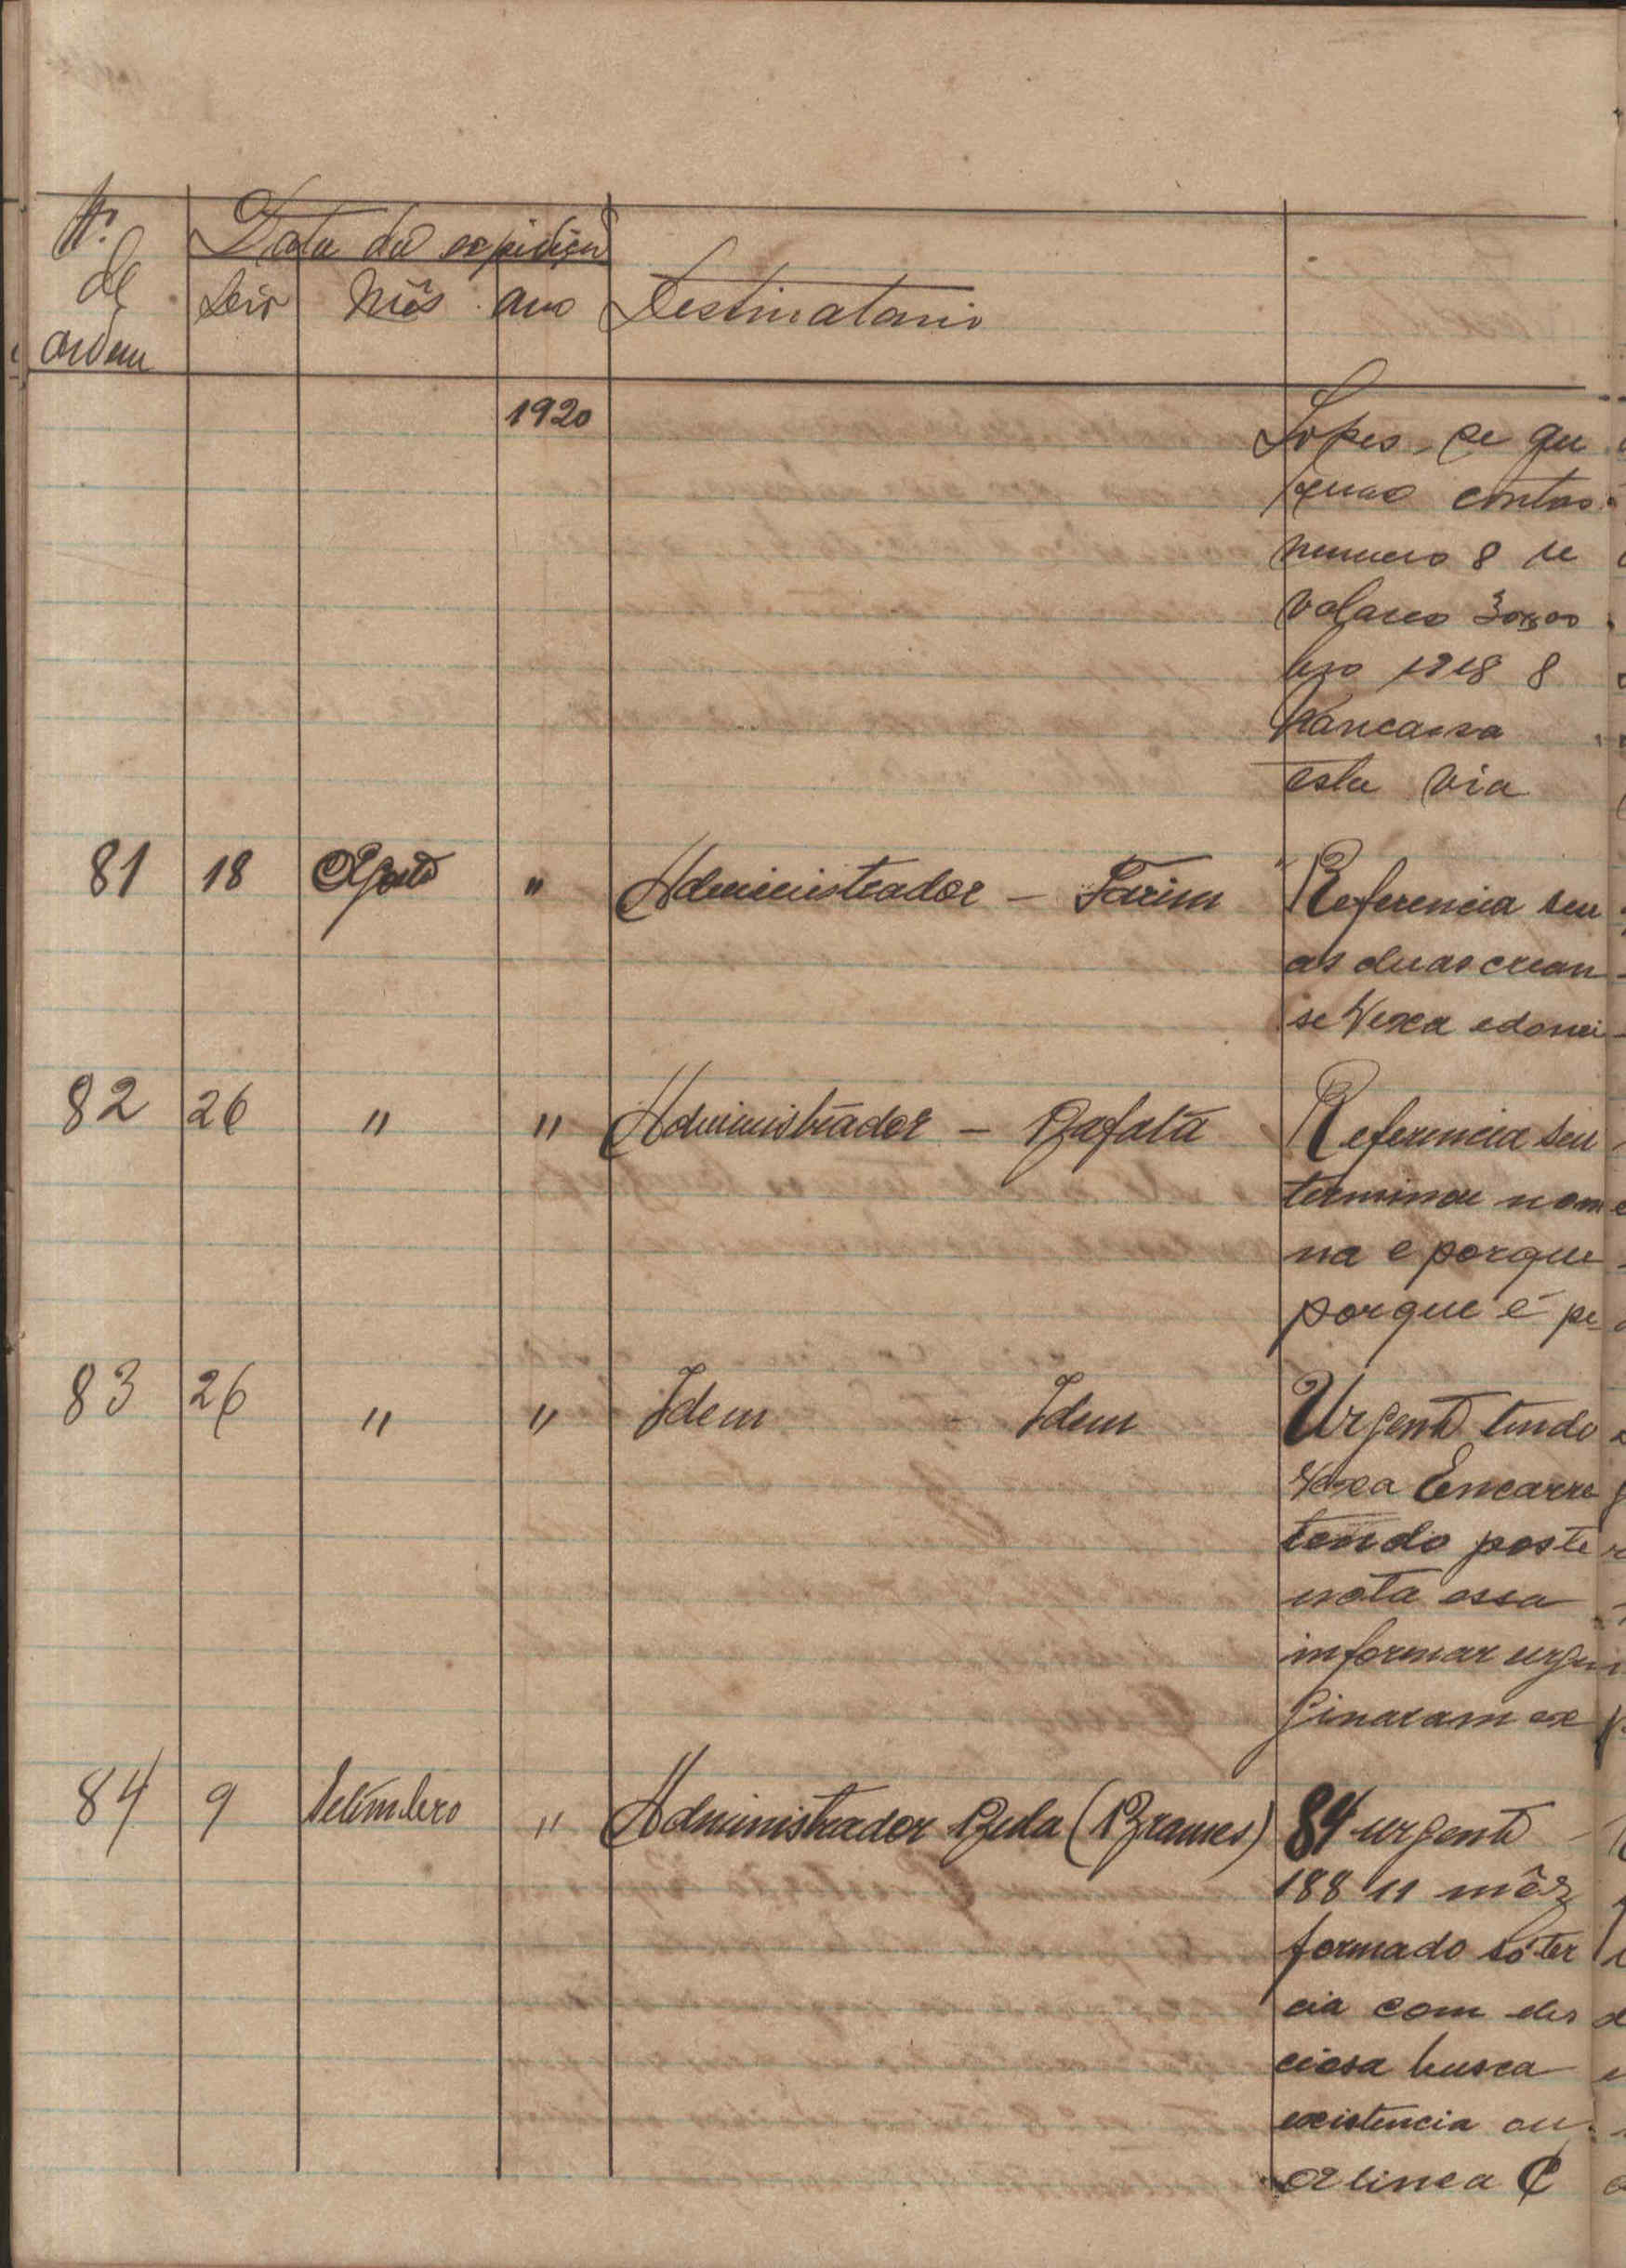 Nº Data da expedição
de
ordem
Dia Mês ano Destinatario
1920
Lopes, se que
contas
numero 8 de
valores 30$00
1918 8
Mancassa
esta via
81 18 Agosto " Administrador - Farim Referencia seu
as duas crean
se Vexa
82 26 " " Administrador - Bafatá Referencia seu
terminou nome
na e porque
porque é pe
83 26 " " Idem - Idem Urgente tendo
Vexa Encarreg
tendo poster
nota essa
informar urgen
ginaram exp
84 9 Setembro " Administrador Buba (Brames) 84 urgente
188 11 mês
formado só ter
cia com des
ciosa busca
existencia ou
alinea C